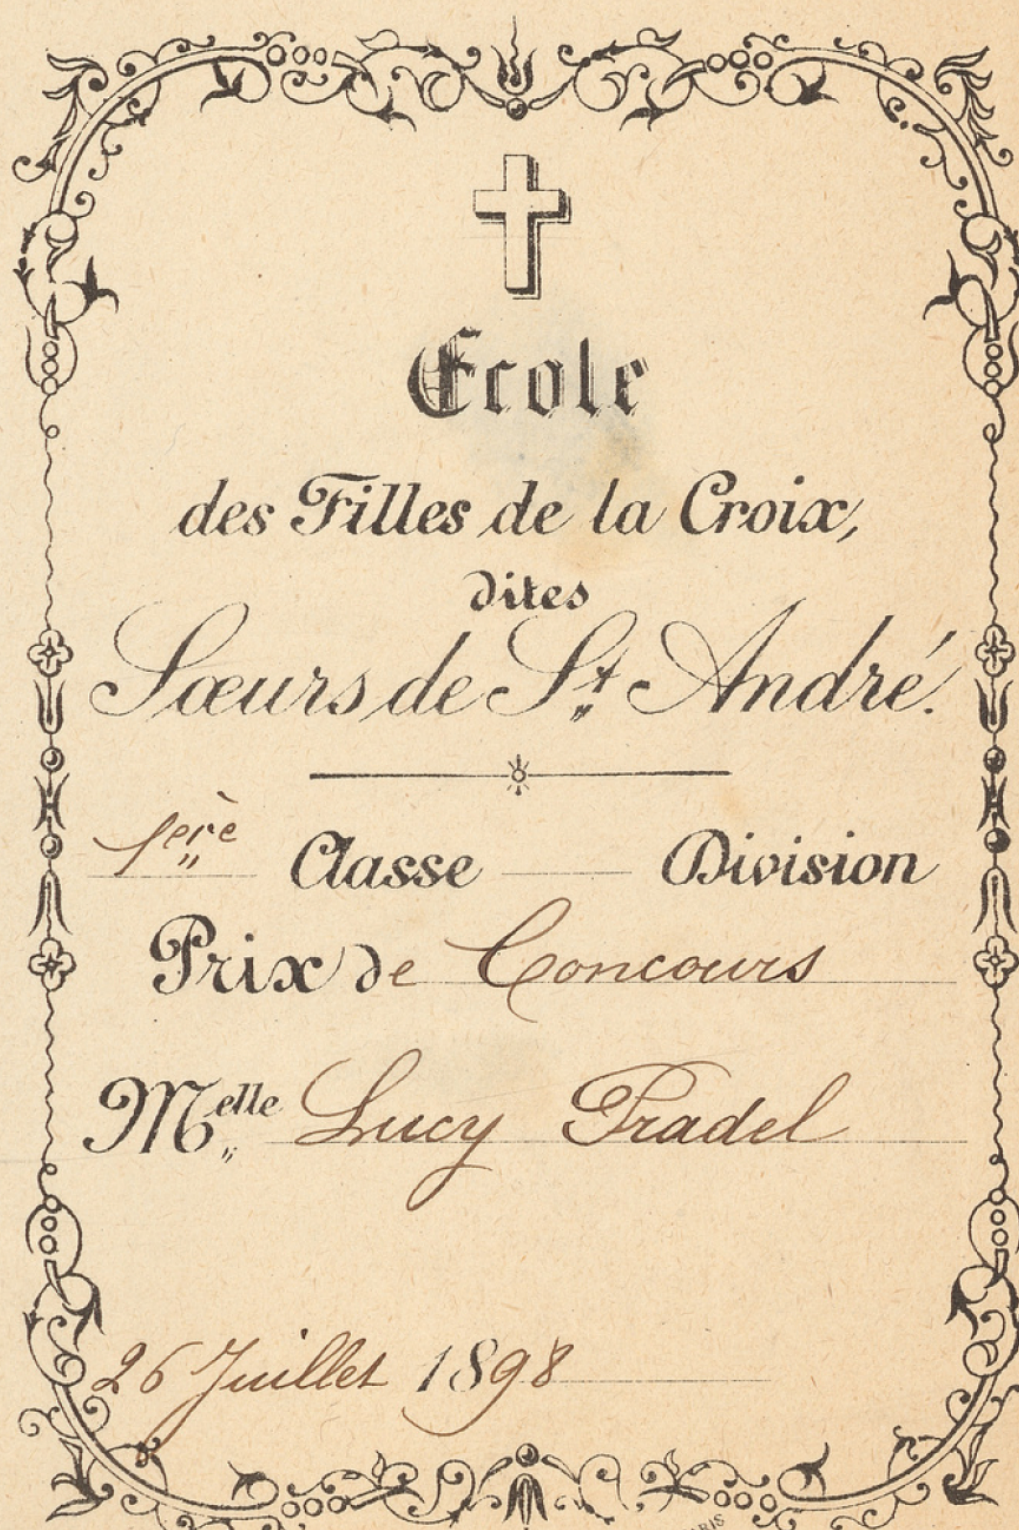 Ecole
des Filles de la Croix,
dites
Sœurs de St. André.
1ère Classe Division
Prix de Concours
Melle Lucy Pradel
26 Juillet 1898